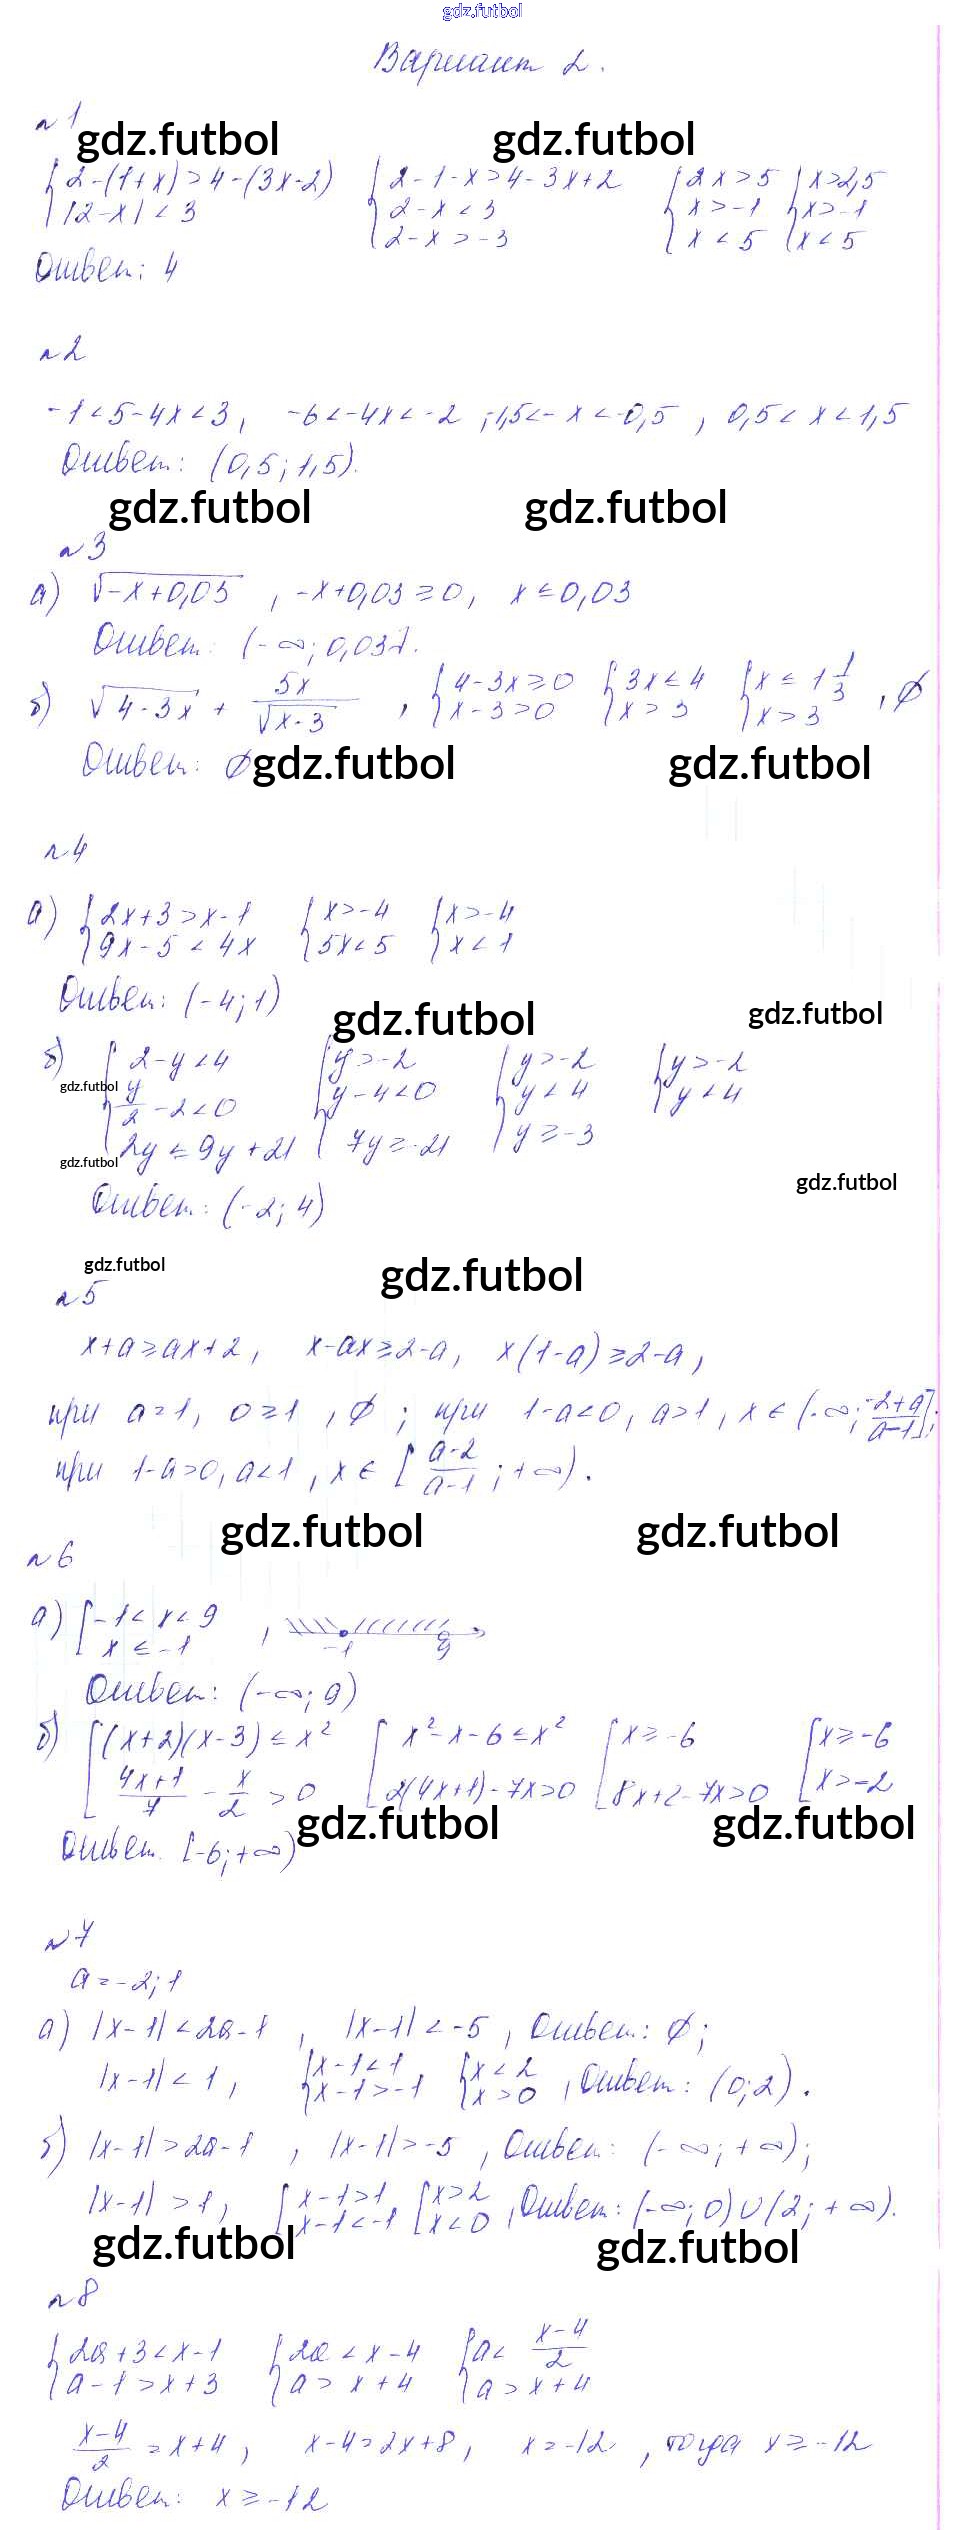 gdz.futbol
Вариант 2.
N1
gdz.futbol gdz.futbol
{2-(1+x)>4-(3x-2) {2-1-x>4-3x+2 {2x>5 {x>2,5
|2-x|<3 2-x<3 x>-1 x>-1
2-x>-3 x<5 x<5
Ответ: 4
N2
-1<5-4x<3, -6<-4x<-2; -1,5<-x<-0,5, 0,5<x<1,5
Ответ: (0,5; 1,5).
gdz.futbol gdz.futbol
N3
а) √(-x+0,03), -x+0,03≥0, x≤0,03
Ответ: (-∞; 0,03].
б) √(4-3x) + 5x/√(x-3), {4-3x≥0 {3x≤4 {x≤1 1/3, ∅
x-3>0 x>3 x>3
Ответ: ∅
gdz.futbol gdz.futbol
N4
а) {2x+3>x-1 {x>-4 {x>-4
9x-5<4x 5x<5 x<1
Ответ: (-4; 1)
gdz.futbol gdz.futbol
б) {2-y<4 {y>-2 {y>-2 {y>-2
gdz.futbol
y/2-2<0 y-4<0 y<4 y<4
2y≤9y+21 7y≥-21 y≥-3
gdz.futbol
gdz.futbol
Ответ: (-2; 4)
gdz.futbol gdz.futbol
N5
x+a≥ax+2, x-ax≥2-a, x(1-a)≥2-a,
при a=1, 0≥1, ∅; при 1-a<0, a>1, x∈(-∞; (-2+a)/(a-1)];
при 1-a>0, a<1, x∈[(a-2)/(a-1); +∞).
gdz.futbol gdz.futbol
N6
а) [-1<x<9
x≤-1 , -1 9
Ответ: (-∞; 9)
б) [(x+2)(x-3)≤x² [x²-x-6≤x² [x≥-6 [x≥-6
(4x+1)/7-x/2>0 2(4x+1)-7x>0 8x+2-7x>0 x>-2
gdz.futbol gdz.futbol
Ответ. [-6; +∞)
N7
a=-2; 1
а) |x-1|<2a-1, |x-1|<-5, Ответ: ∅;
|x-1|<1, {x-1<1 {x<2
x-1>-1, x>0, Ответ: (0; 2).
б) |x-1|>2a-1, |x-1|>-5, Ответ: (-∞; +∞);
|x-1|>1, [x-1>1, [x>2
x-1<-1 x<0, Ответ: (-∞; 0)∪(2; +∞).
gdz.futbol gdz.futbol
N8
{2a+3<x-1 {2a<x-4 {a<(x-4)/2
a-1>x+3 a>x+4 a>x+4
(x-4)/2=x+4, x-4=2x+8, x=-12, тогда x≥-12
Ответ: x≥-12